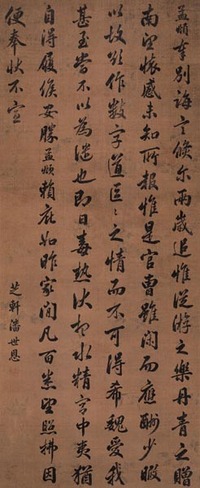 孟頫奉別誨言倏尔兩歲追惟從游之樂丹青之贈
南望悵感未知所報惟是官曹雖閒而應酬少暇
以故欲作數字道區〻之情而不可得希魏愛我
甚至當不以為譴也即日毒熱伏想水精宮中夷猶
自得履候安勝孟頫賴庇如昨家間凡百悉望照拂因
便奉狀不宣
芝軒潘世恩